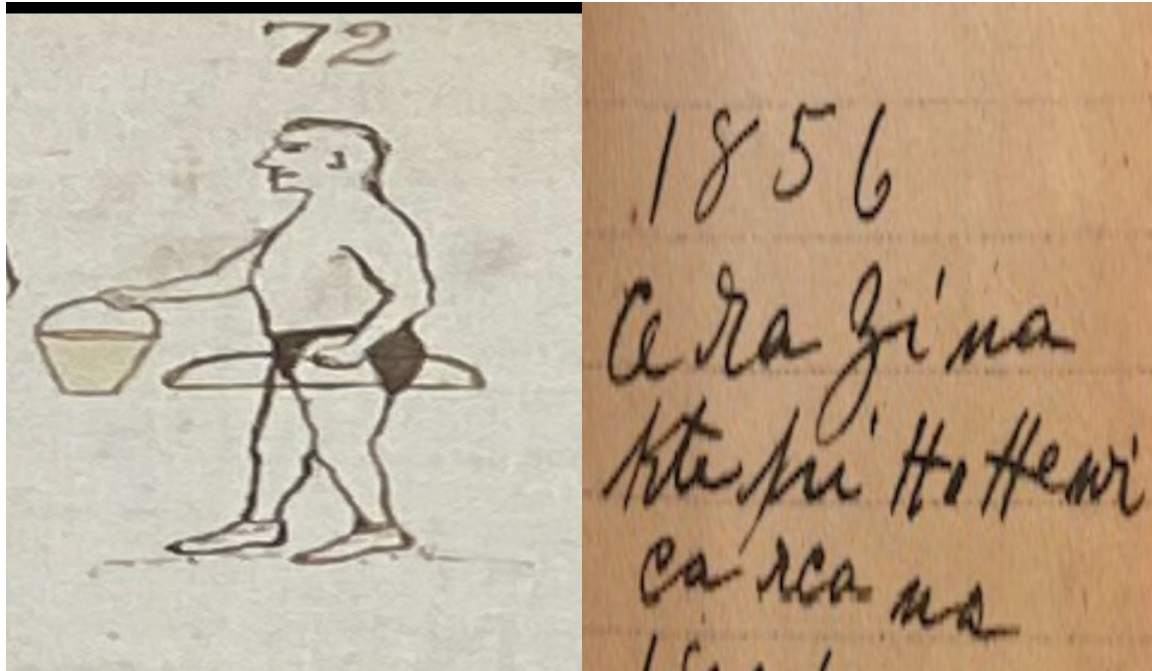 72
1856
Ce Ra zi na
kte pi Ho He wi
ca rca na